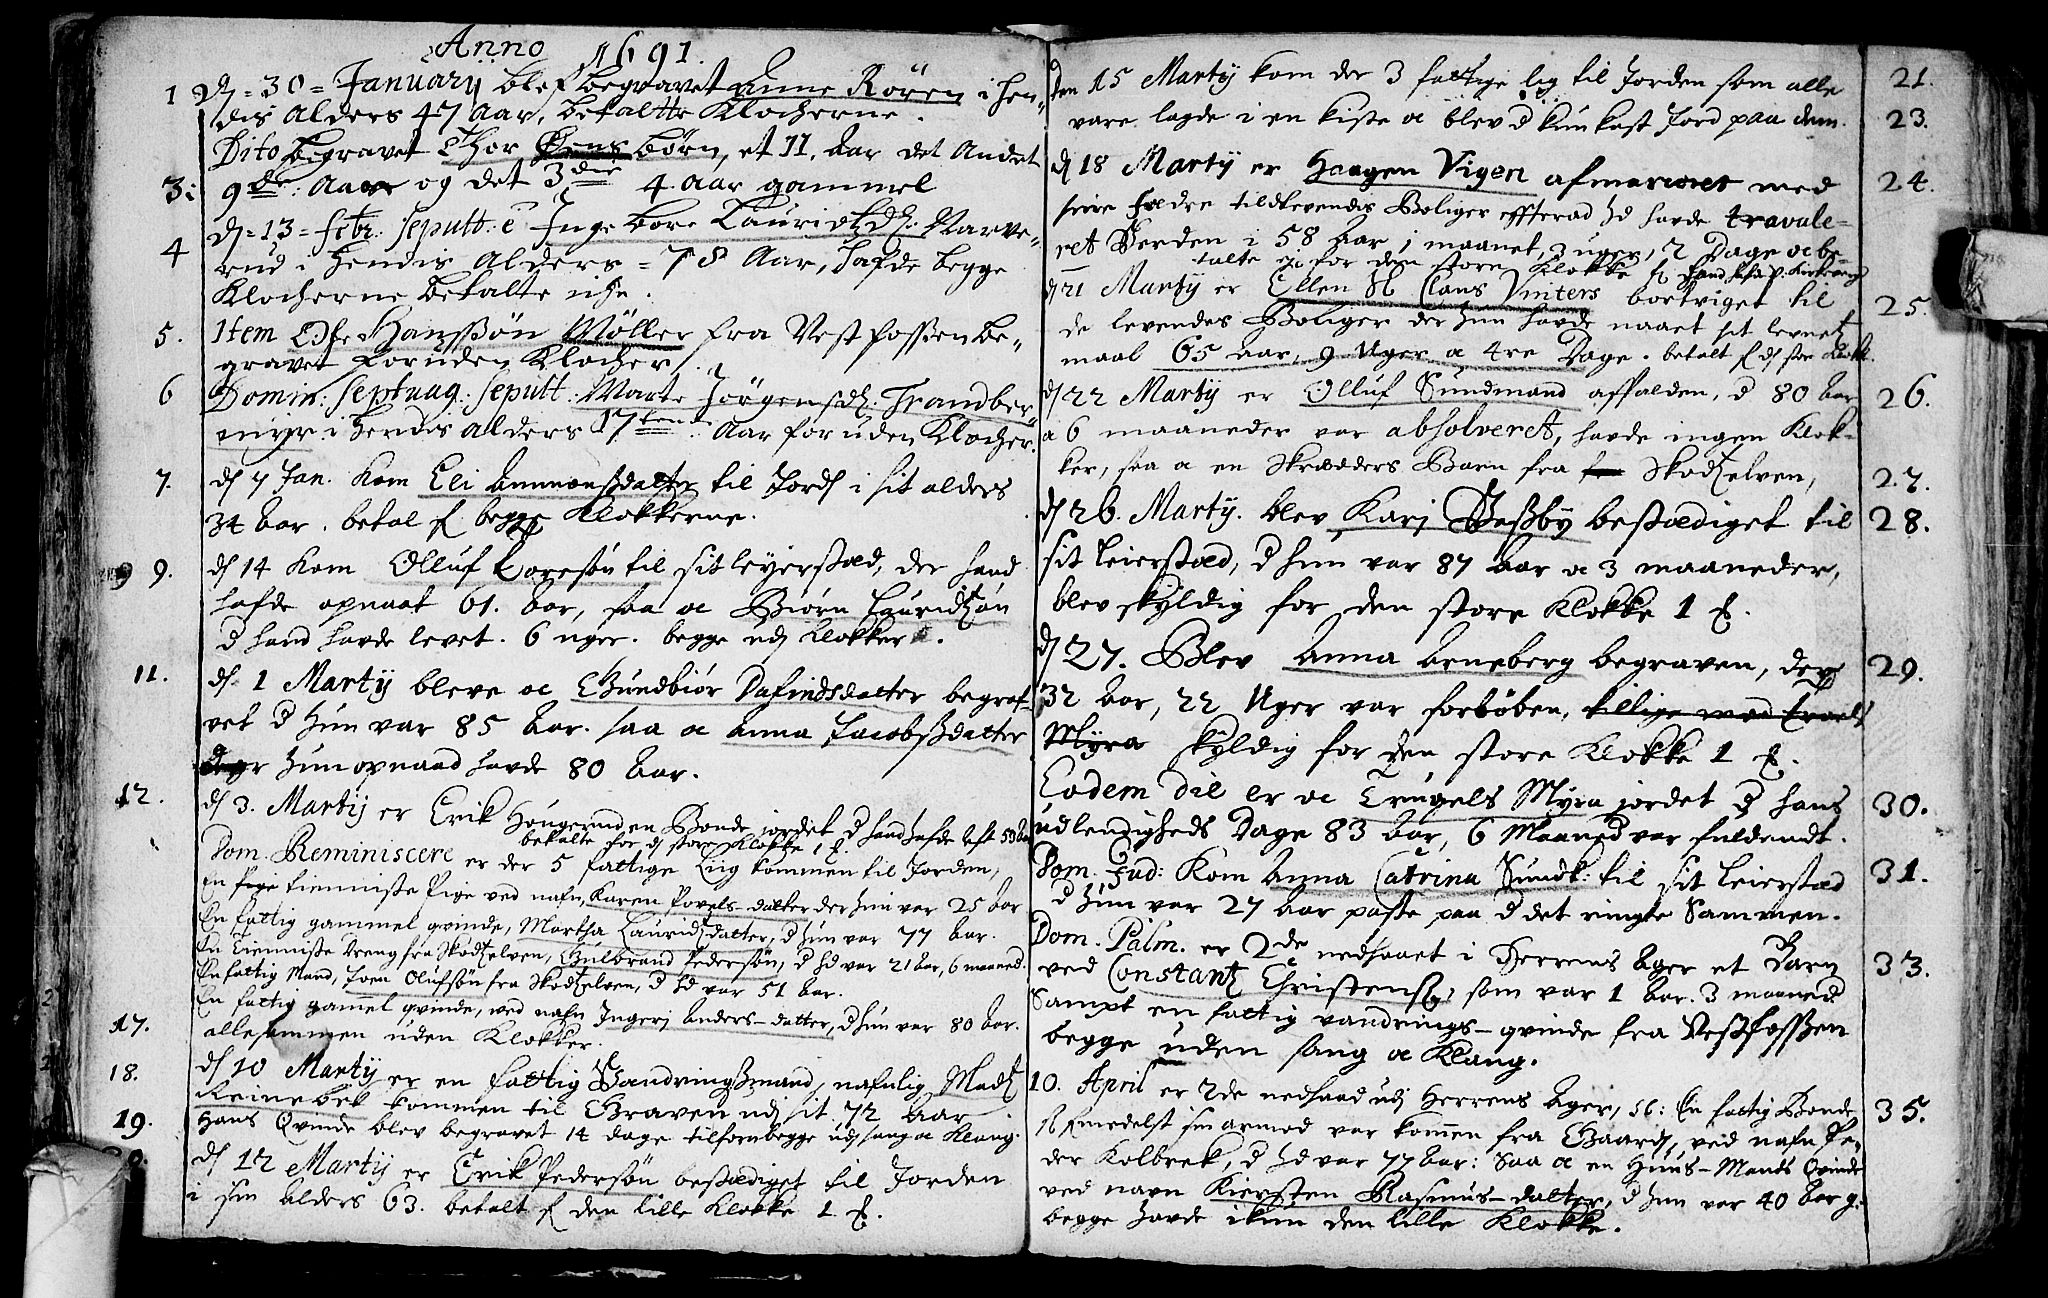 Anno 1691.
1 d. 30 = January blef begravet Anne Rören i hen„
dis Alders 47 Aar, betalte Klocherne.
Dito begravet Thor Öens börn, et 11. Aar det Andet
3: 9de: Aar og det 3die 4 Aar gammel
d. 13 = febr: seputt: e Ingebore Lauridtzd: Narve„
4 rud i hendis Alders = 78 Aar, hafde begge
Klocherne betalte
5. Item Ole Hanssön Möller fra Vestfossen be„
gravet foruden Klocher.
6 Domin: Septuag: seputt: Marte Jörgensd: Trandber„
myr i hendis alders 17ten Aar foruden Klocher.
7. d 7 Jan. kom Eli Ammonsdatter til Jord i sit alders
34 Aar. betal f begge Klokkerne.
9 9. d 14 kom Olluf Toresön til sit leyerstæd, der hand
hafde opnaat 61. Aar, saa oc Biörn Lauridtzön
d hand havde levet. 6 uger. begge ud Klokker.
11. d. 1 Martij bleve oc Gundbiör Dafindsdatter begraf-
vet d hun var 85 Aar. saa oc Anna Jacobsdatter
hun opnaad havde 80 Aar.
12. d 3. Martij er Erik Hougerud en Bonde jordet d hand hafde left 59 Aar
betalte for d store Klokke 1
Dom. Reminiscere er der 5 fattige Liig kommen til Jorden,
En tienniste Pige ved nafn, Karen Povels-datter der hun var 25 Aar
En fattig gammel qvinde, Martha Lauridtzdatter, d hun var 77 Aar.
En Tienniste dreng fra Skodtzelven, Gulbrand Pedersön, d hd var 21 Aar, 6 maaned.
En fattig Mand, Joen Olufsön fra Skodtzelven, d hd var 51 Aar.
En fattig gamel qvinde, ved nafn Ingerj Anders-datter, d hun var 80 Aar.
17. allesammen uden Klokker.
18. d 10 Martij er en fattig Vandringsmand, nafnlig Madtz
Reinebek kommen til Graven udj sit 72 Aar
19. Hans Qvinde blev begravet 14 dage tilforn begge ud sang oc Klang.
20. d 12 Martij er Erik Pedersön bestædiget til Jorden
i sin Alders 63. betalt f den lille Klokke 1
Den 15 Martij kom der 3 fattige lig til Jorden som alle 21.
vare lagde i en kiste oc blev d kun kast Jord paa dem. 23.
d 18 Martij er Haagen Vigen afmarceret med 24.
seire Fædre til de levendis Boliger effterad hd havde travale-
ret Verden i 58 Aar 1 maanet, 3 uger, 2 Dage oc be-
talte for den store Klokke
d 21 Martij er Ellen Sl Clavs Vinters bortviget til 25.
de levendes Boliger der hun havde naaet sit levnetz
maal 65 Aar, 9 Uger oc 4re Dage. betalt f d stor Klokk.
d 22 Martij er Olluf Sundmand affalden, d 80 Aar 26.
oc 6 maaneder var absolveret, havde ingen Klok-
ker, saa oc en Skrædders Barn fra Skodtzelven, 27.
d 26. Martij. blev Karj Bassby bestædiget til 28.
sit Leierstæd, d hun var 87 Aar oc 3 maaneder,
blev skyldig for den store Klokke 1
d 27. Blev Anna Arneberg begraven, der 29.
32 Aar, 22 Uger var forböben, tillige med Troels
Myra skyldig for den store Klokke 1
Eodem die er oc Trugels Myra jordet d hans 30.
udlendigheds Dage 83 Aar, 6 Maaned var fuldendt.
Dom. Jud: Kom Anna Catrina Sundt: til sit Leierstæd 31.
d hun var 27 Aar paste paa d det ringte Sammen.
Dom. Palm. er 2de nedsaaet i Herrens Ager et Barn
ved Constantz Christens, som var 1 Aar. 3 maaned 33.
Sampt en fattig vandrings-qvinde fra Vestfossen
begge uden sang oc Klang.
10. April er 2de nedsaad udj Herrens Ager, En fattig Bonde, 35.
formedelst sin armod var kommen fra Gaard, ved nafn Pe-
der Kolbrek, d hd var 77 Aar: Saa oc en Huus-Mands Qvinde
ved navn Kiersten Rasmus-datter, d hun var 40 Aar g:
begge havde ikun den lille Klokke.